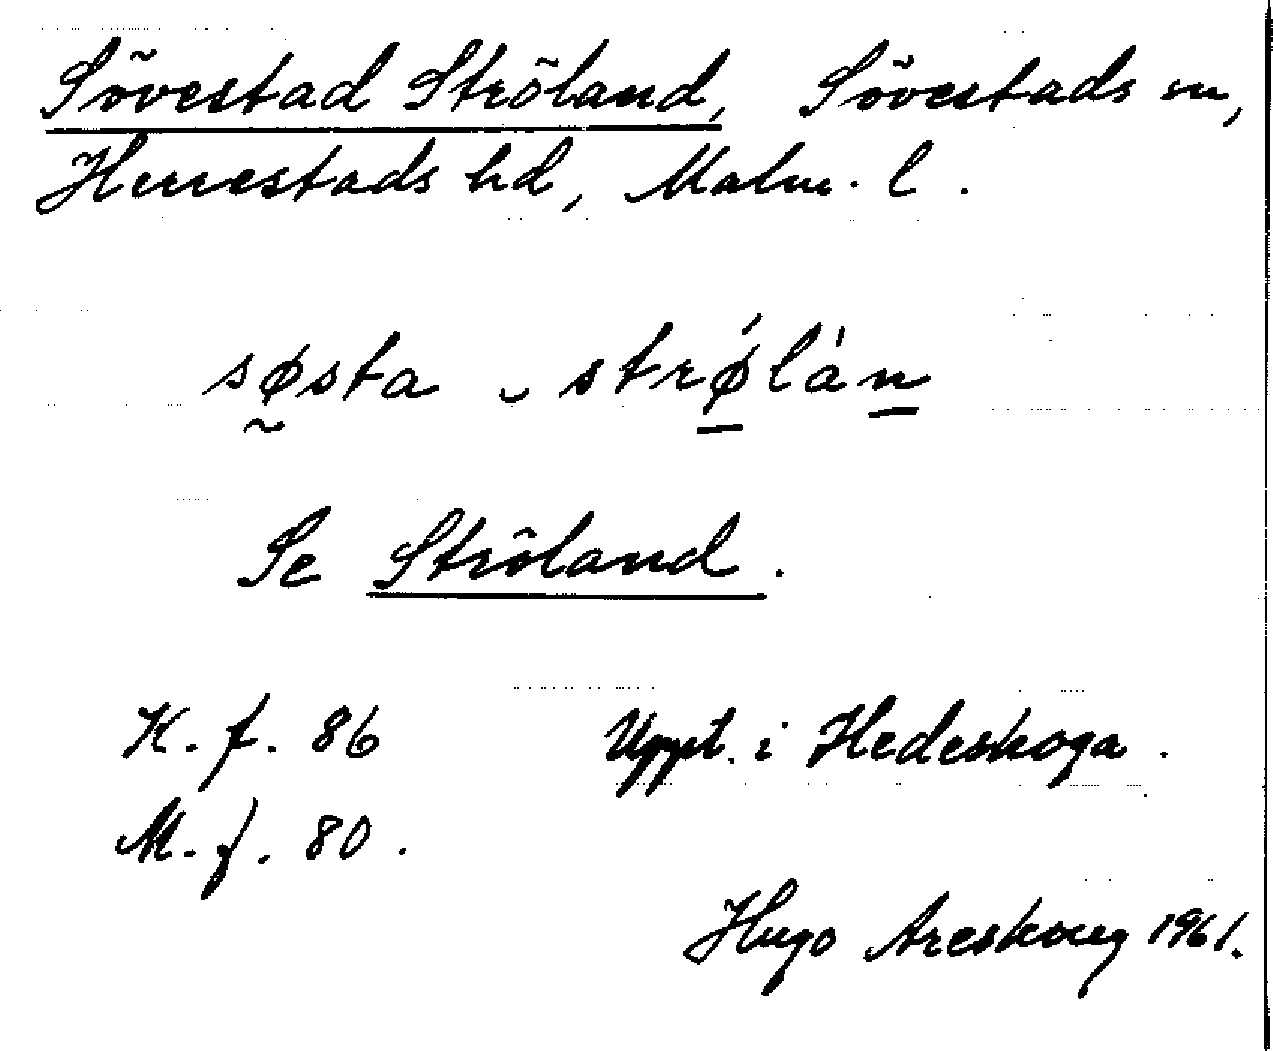 Sövestad Ströland, Sövestads sn,
Herrestads hd, Malm. l.
sø̰sta ˬ strǿ̠lán̠
Se Ströland.
K. f. 86 Uppt. i Hedeskoga.
M. f. 80.
Hugo Areskoug 1961.